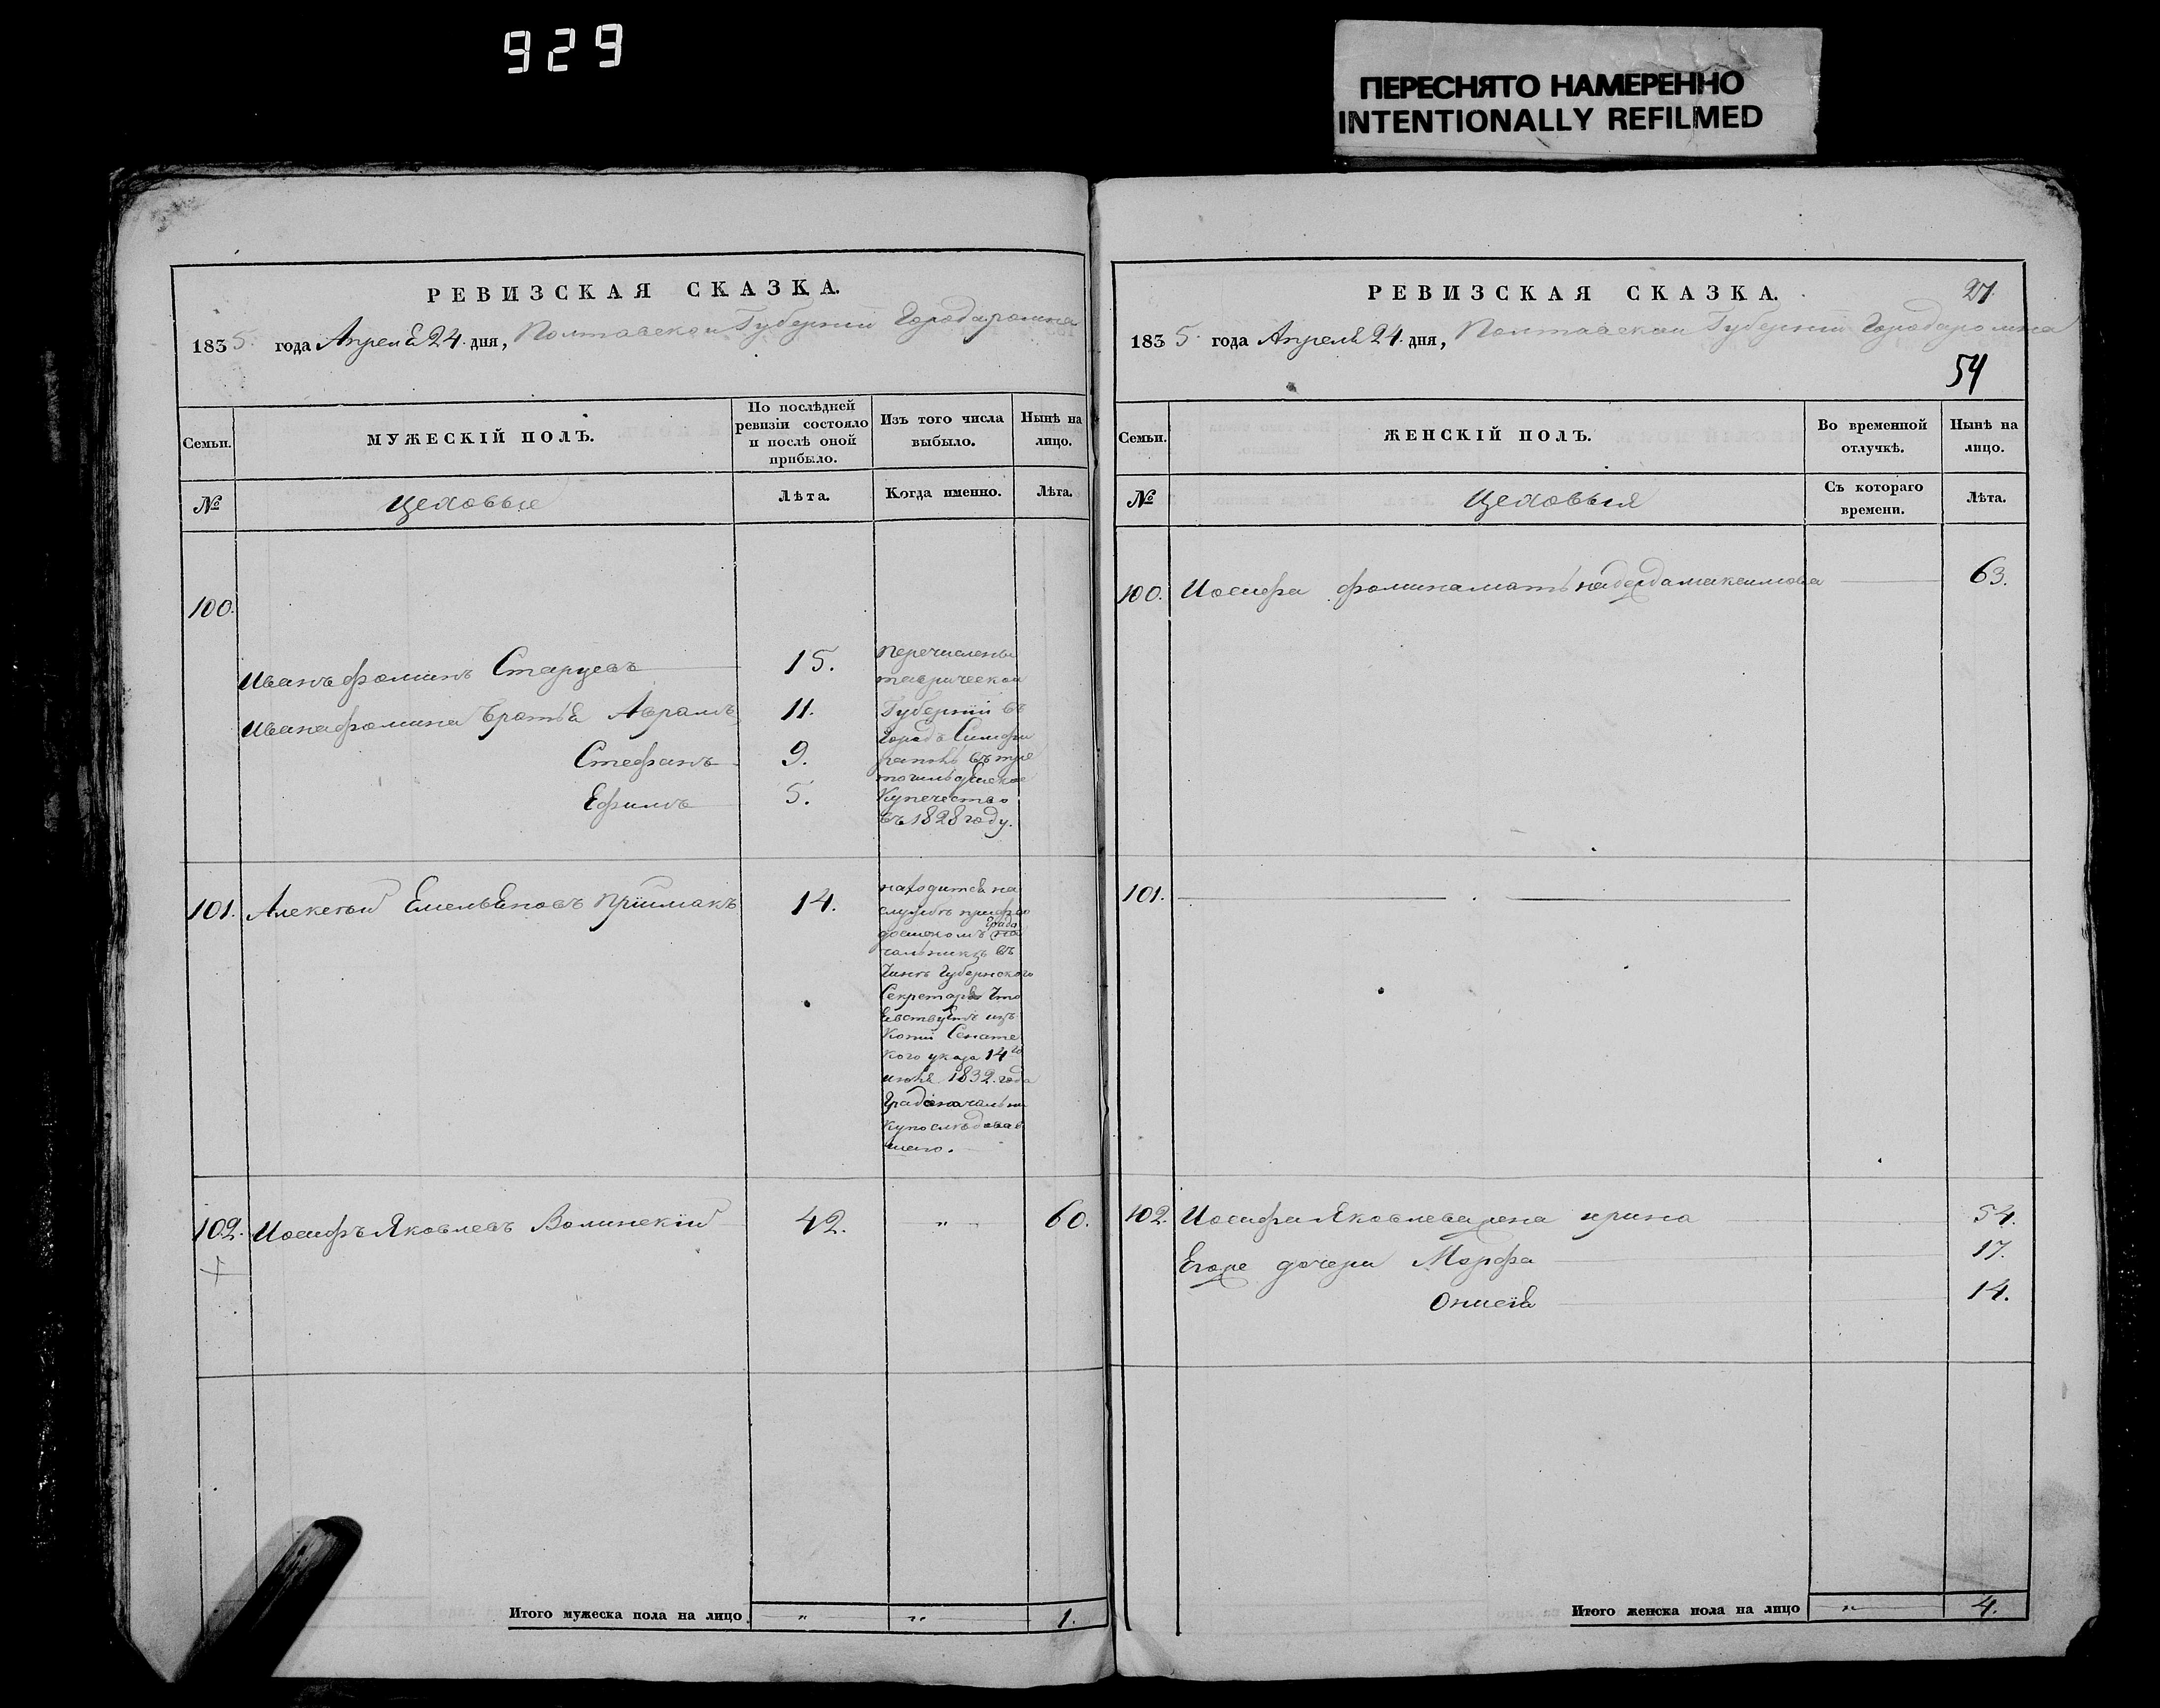 929
ПЕРЕСНЯТО НАМЕРЕННО
INTENTIONALLY REFILMED
РЕВИЗСКАЯ СКАЗКА.
1835. года Апреля 24. дня, Полтавской Губернии Города ромна
Семьи.
МУЖЕСКІЙ ПОЛЪ.
По послѣдней ревизіи состояло и послѣ оной прибыло.
Изъ того числа выбыло.
Нынѣ на лицо.
№
Цеховые
Лѣта.
Когда именно.
Лѣта.
100.
Иванъ фоминъ Старцевъ 15.
Ивана фомина братья Аврамъ 11.
Стефанъ 9.
Ефимъ 5.
перечислены
таврической
Губернии въ
Городъ Симфи
ропиль въ тре
тогильдейское
Купечество
въ 1828 году.
101. Алексѣй Емельяновъ Приймакъ 14.
находится на
службѣ при фео
досиском Града
на
чальникѣ въ
Чинѣ Губернского
Секретаря Что
Явствуетъ изъ
Копии Сенатс
кого указа 14го
июня 1832. года
Градоначальни
ку последовав
шего.
102. Иосифъ Яковлевъ Волинский 42. " " 60.
Итого мужеска пола на лицо " " 1.
РЕВИЗСКАЯ СКАЗКА.
27.
1835 года Апреля 24. дня, Полтавской Губернии Города ромна
54
Семьи.
ЖЕНСКІЙ ПОЛЪ.
Во временной отлучкѣ.
Нынѣ на лицо.
№
Цеховыя
Съ котораго времени.
Лѣта.
100. Иосифа фомина мать надежда максимова 63.
101.
102. Иосифа Яковлева жена ирина 54.
Егоже дочери Марфа 17.
Онисія 14.
Итого женска пола на лицо " 4.